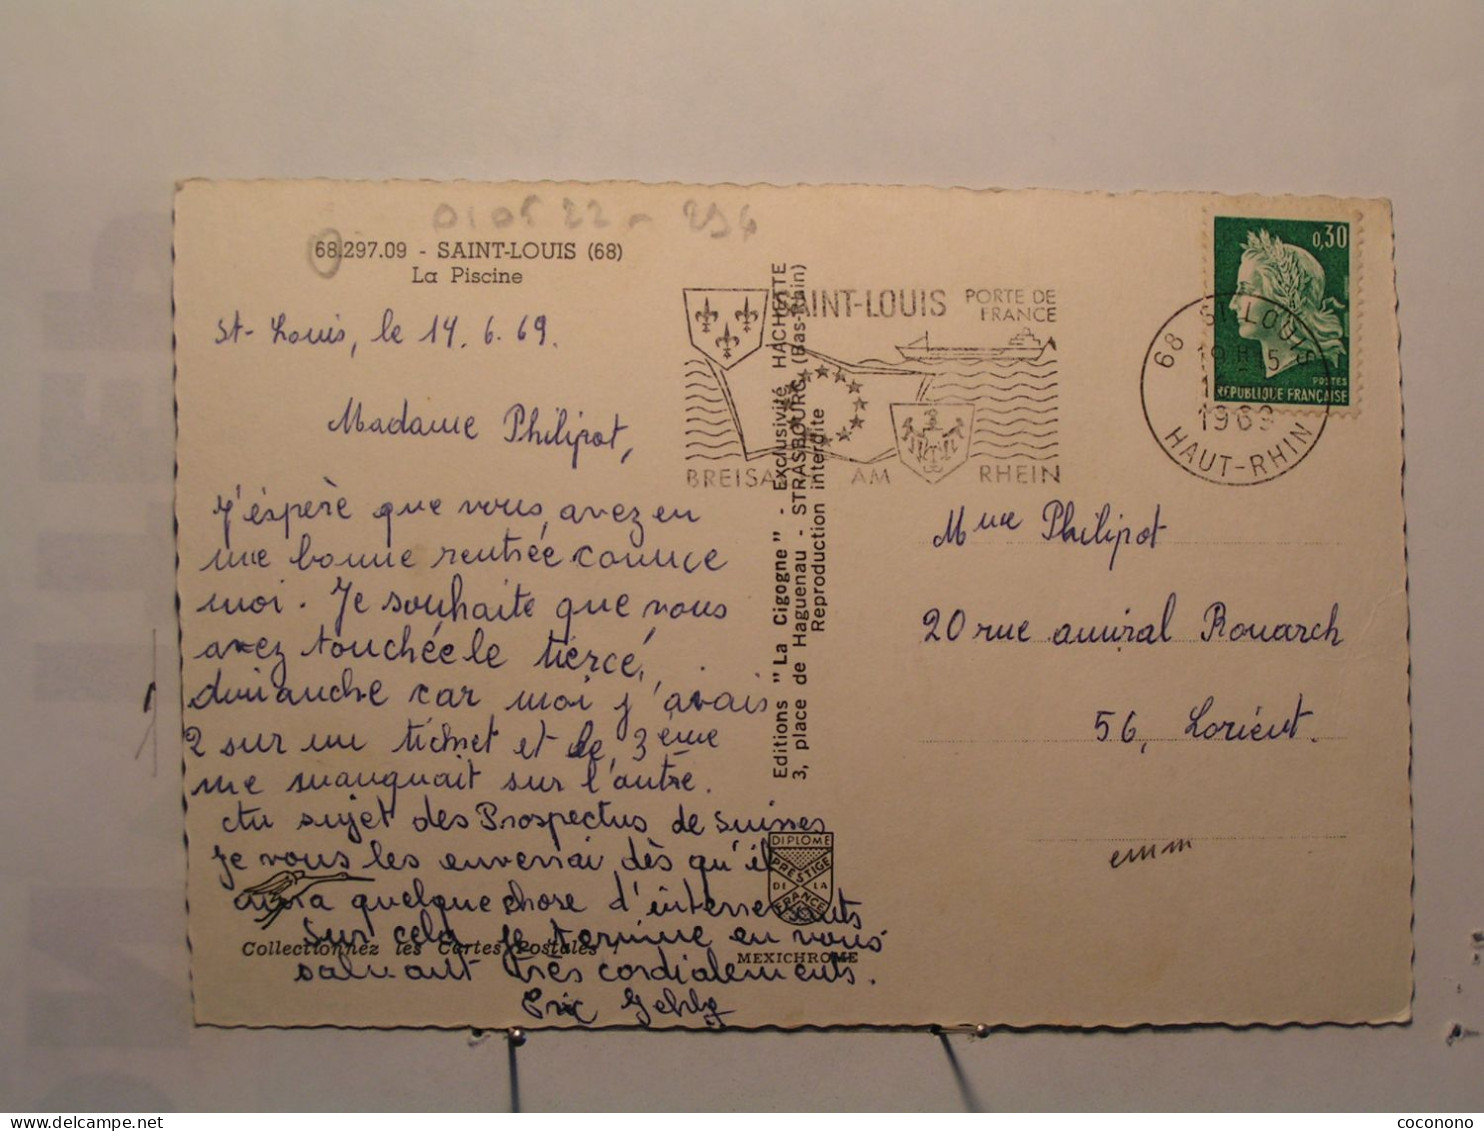 01 05 22 - 294
68.297.09 - SAINT-LOUIS (68)
La Piscine
St-Louis, le 14.6.69.
Madame Philipot,
J'éspère que vous avez eu
une bonne rentrée comme
moi. Je souhaite que vous
avez touchée le tiercé,
dimanche car moi j'avais
2 sur un ticket et le 3ème
me manquait sur l'autre.
Au sujet des Prospectus de Suisses
je vous les enverrai dès qu'il
aura quelque chose d'interressants
Sur cela je termine en vous
saluant très cordialements.
Eric
Collectionnez les Cartes Postales
Editions "La Cigogne" - Exclusivité HACHETTE
3, place de Haguenau - STRASBOURG (Bas-Rhin)
Reproduction interdite
DIPLOME
PRESTIGE
DE LA
FRANCE
MEXICHROME
SAINT-LOUIS PORTE DE
FRANCE
BREISA AM RHEIN
0,30
POSTES
REPUBLIQUE FRANÇAISE
68 ST LOUIS
1969
HAUT-RHIN
Mme Philipot
20 rue amiral Rouarch
56, Lorient.
coconono